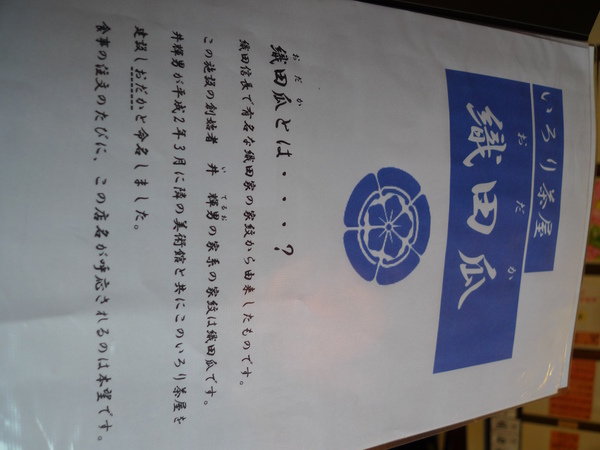 いろり茶屋
おだか
織田瓜
おだか
織田瓜とは・・・?
織田信長で有名な織田家の家紋から由来したものです。
いてるお
この施設の創始者 井 輝男の家系の家紋は織田瓜です。
井輝男が平成2年3月に隣の美術館と共にこのいろり茶屋を
建設しおだかと命名しました。
食事の注文のたびに、この店名が呼応されるのは本望です。